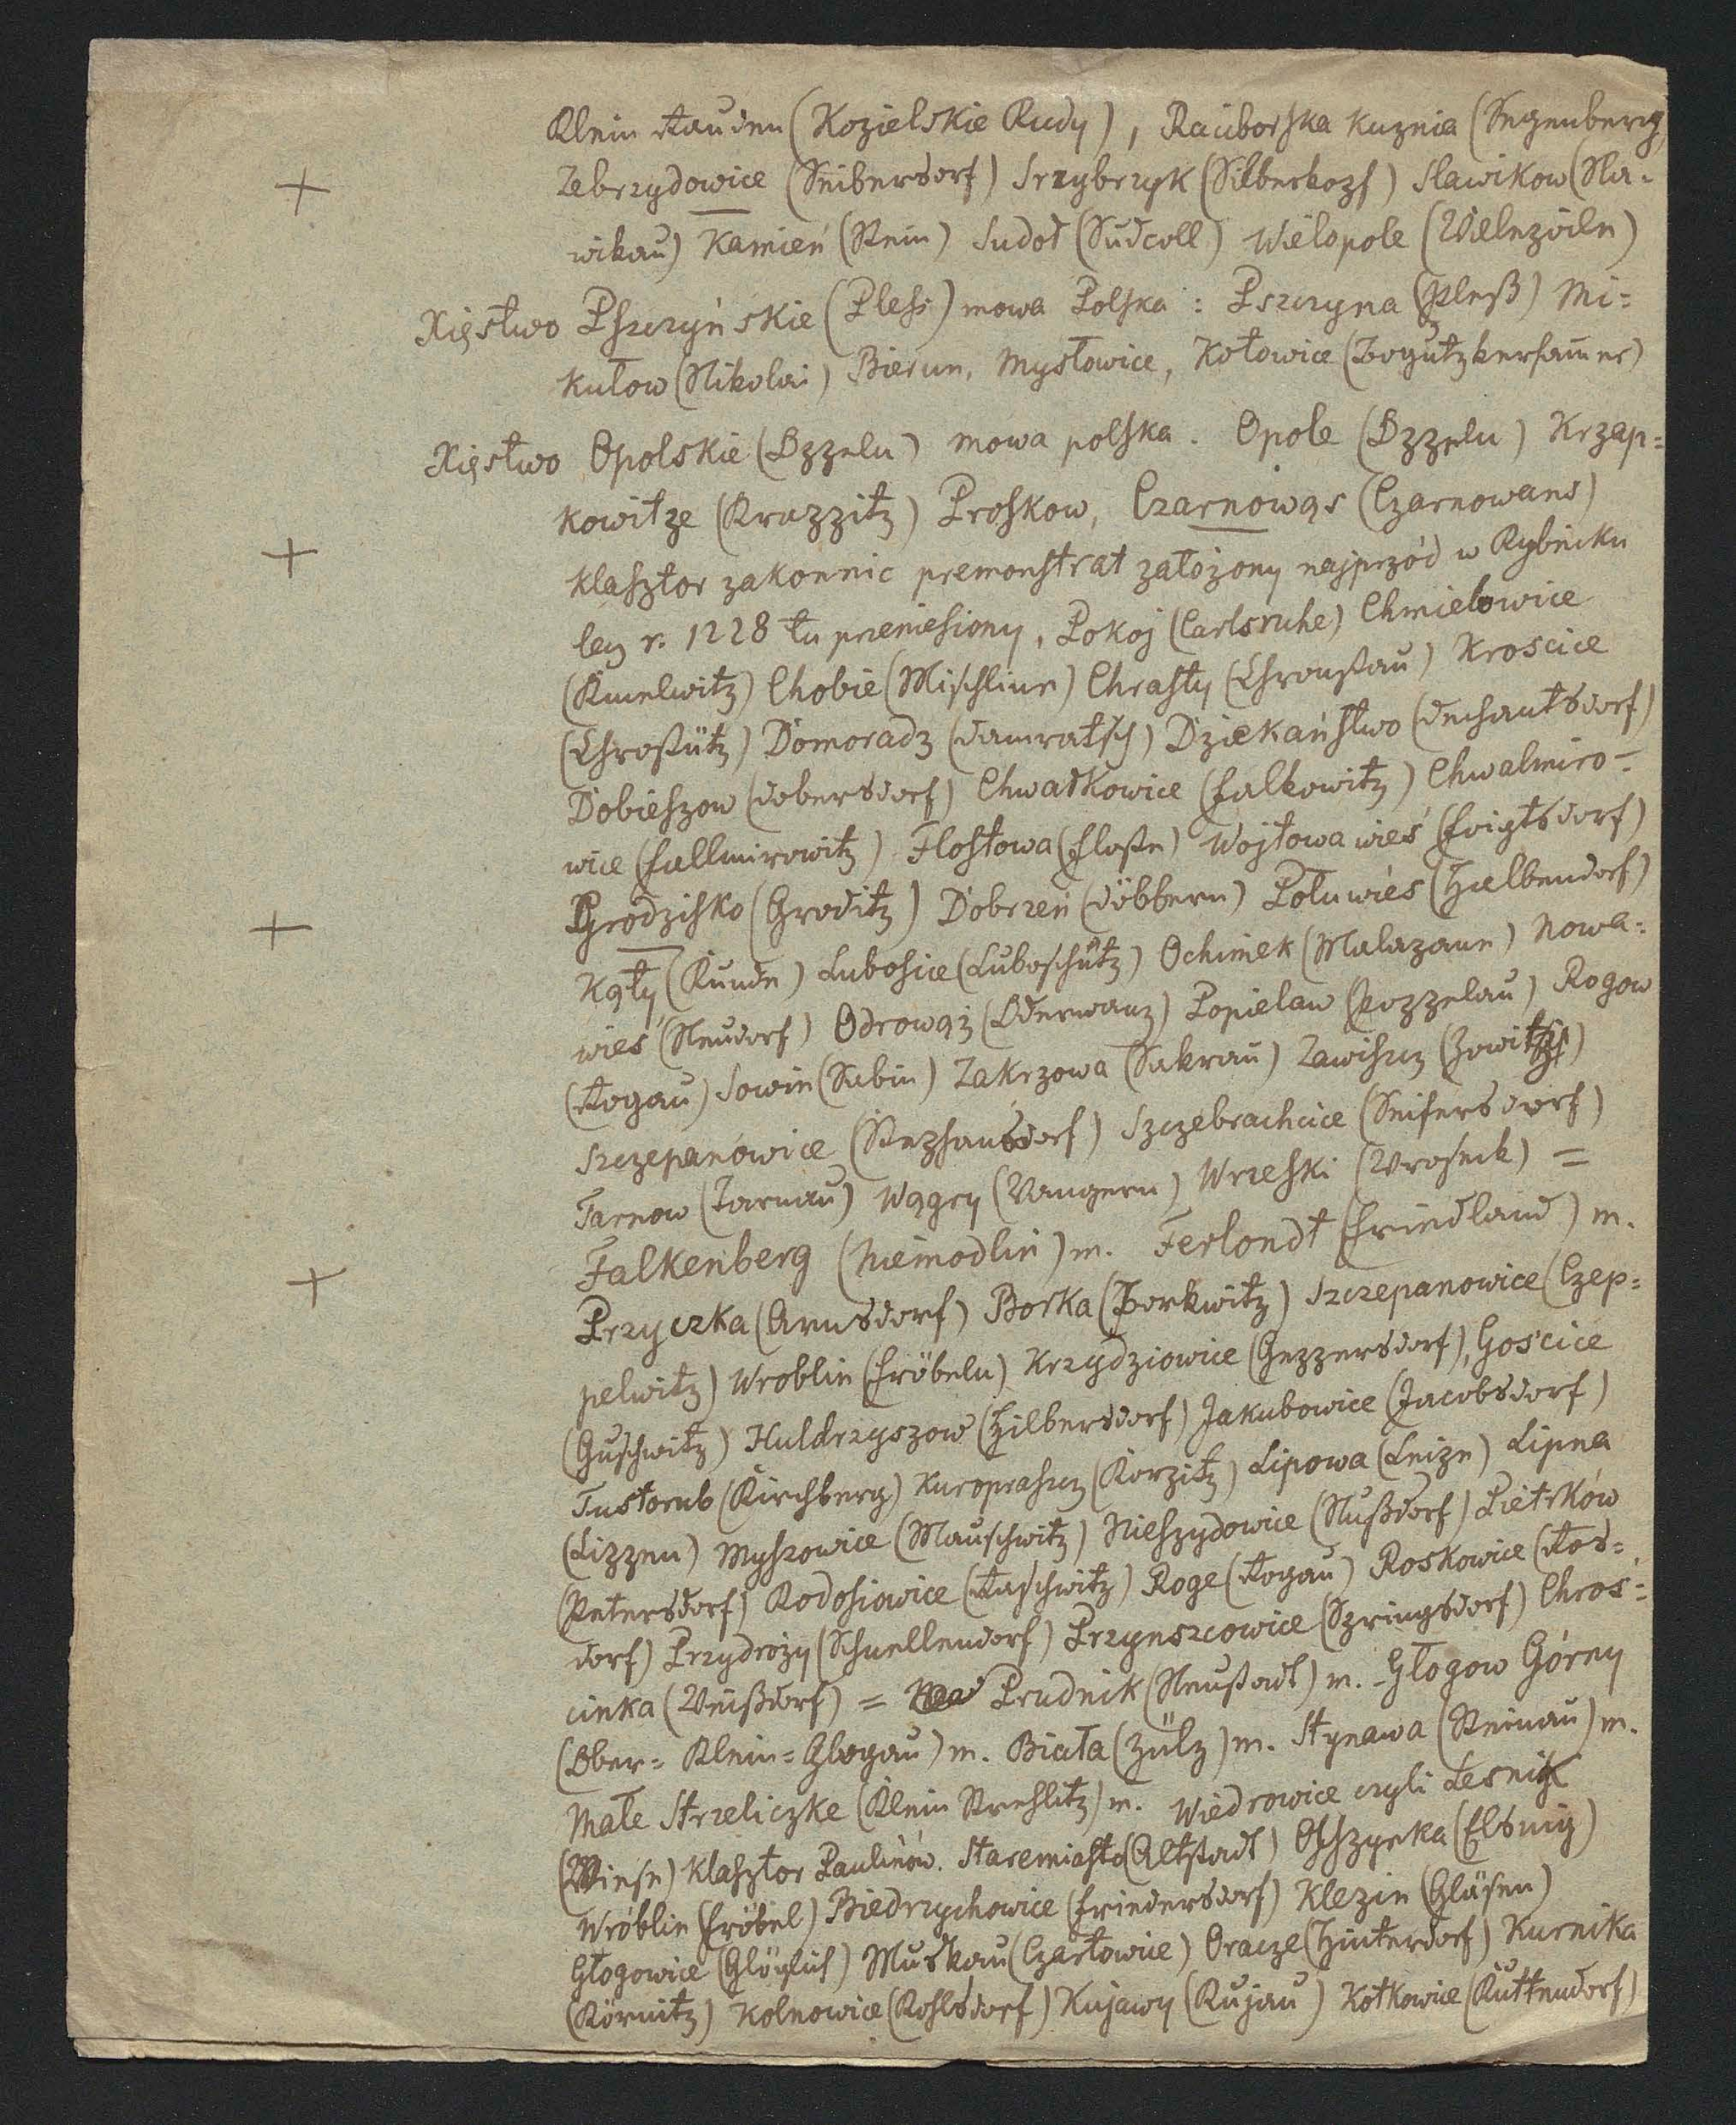 Klein Rauden (Kozielskie Rudy), Raciborska Kuznia (Segenberg)
Zebrzydowice (Seibersdorf) Srzybrzyk (Silberkopf) Slawikow (Sla=
wikau) Kamień (Stein) Sudoł (Sudcoll) Wielopole (Vielepole)
Xięstwo Pszczyńskie (Pless) mowa Polska: Pszczyna (Pleß) Mi=
kułow (Nikolai) Bierun, Mysłowice, Kotowice (Bogutzkerhamer)
Xięstwo Opolskie (Oppeln) mowa polska. Opole (Oppeln) Krzap=
kowitze (Krappitz) Proskow, Czarnowąs (Czarnowans)
Klasztor zakonnic premonstrat założony najprzód w Rybniku
lecz r. 1228 tu przeniesiony, Pokoj (Carlsruhe) Chmielowice
(Kmelwitz) Chobie (Mischline) Chrasty (Chroustau) Krościce
(Chrostütz) Domoradz (Damratsch) Dziekaństwo (Dechantsdorf)
Dobieszow (Dobersdorf) Chwałkowice (Falkowitz) Chwalmiro=
wice (Fallmirowitz) Flostowa (Floste) Wojtowa wieś (Foigtsdorf)
Grodzisko (Groditz) Dobrzeń (Döbbern) Połuwieś (Halbendorf)
Kąty (Kunde) Lubosice (Luboschütz) Ochimek (Malapane) Nowa=
wieś (Neudorf) Odrowąż (Oderwanz) Popielaw (Poppelau) Rogow
(Rogau) Sowin (Sabin) Zakrzowa (Sakrau) Zawiszcz
Szczepanowice (Stephansdorf) Szczebrachcice (Seifersdorf)
Tarnow (Tarnau) Wągry (Vangern) Wrzeski (Vroseck) =
Falkenberg (Niemodlin) m. Ferlondt (Friedland) m.
Przyczka (Arnsdorf) Borka (Borkwitz) Szczepanowice (Czep=
pelwitz) Wroblin (Fröbeln) Krzydziowice (Geppersdorf), Gościce
(Guschwitz) Huldrzyszow (Hilbersdorf) Jakubowice (Jacobsdorf)
Tustorub (Kirchberg) Kuroprasz (Korpitz) Lipowa (Leipe) Lipna
(Lippen) Myszowice (Mauschwitz) Nieszydowice (Nußdorf) Pietrków
(Petersdorf) Rodosiowice (Raschwitz) Roge (Rogau) Roskowice (Ros=
dorf) Przydroży (Schnellendorf) Przynszcowice (Springsdorf) Chroś=
cinka (Weißdorf) = Prudnik (Neustadt) m. Głogow Górny
(Ober= Klein=Glogau) m. Biała (Zülz) m. Stynawa (Steinau) m.
Małe Strzeliczke (Klein Strehlitz) m. Wiedrowice czyli Lesnik
(Wiese) Klasztor Paulinów. Staremiasto (Altstadt) Olszynka (Elsnig)
Wróblin (Fröbel) Biedrzychowice (Friedersdorf) Klezin (Gläsen)
Głogowice (Glöglich) Muskau (Czartowice) Oracze (Hinterdorf) Kurnika
(Körnitz) Kolnowice (Kohlsdorf) Kujawy (Kujau) Kotkowice (Kuttendorf)